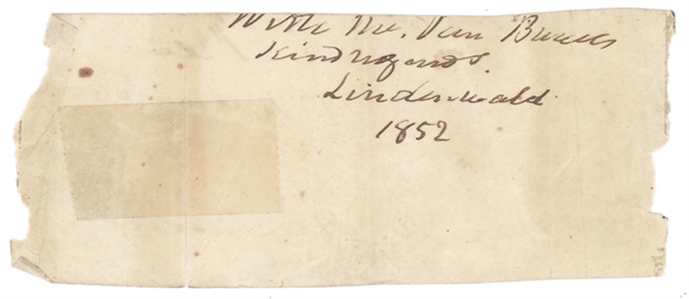 With Mr. Van Buren's
Kind regards.
Lindenwald
1852